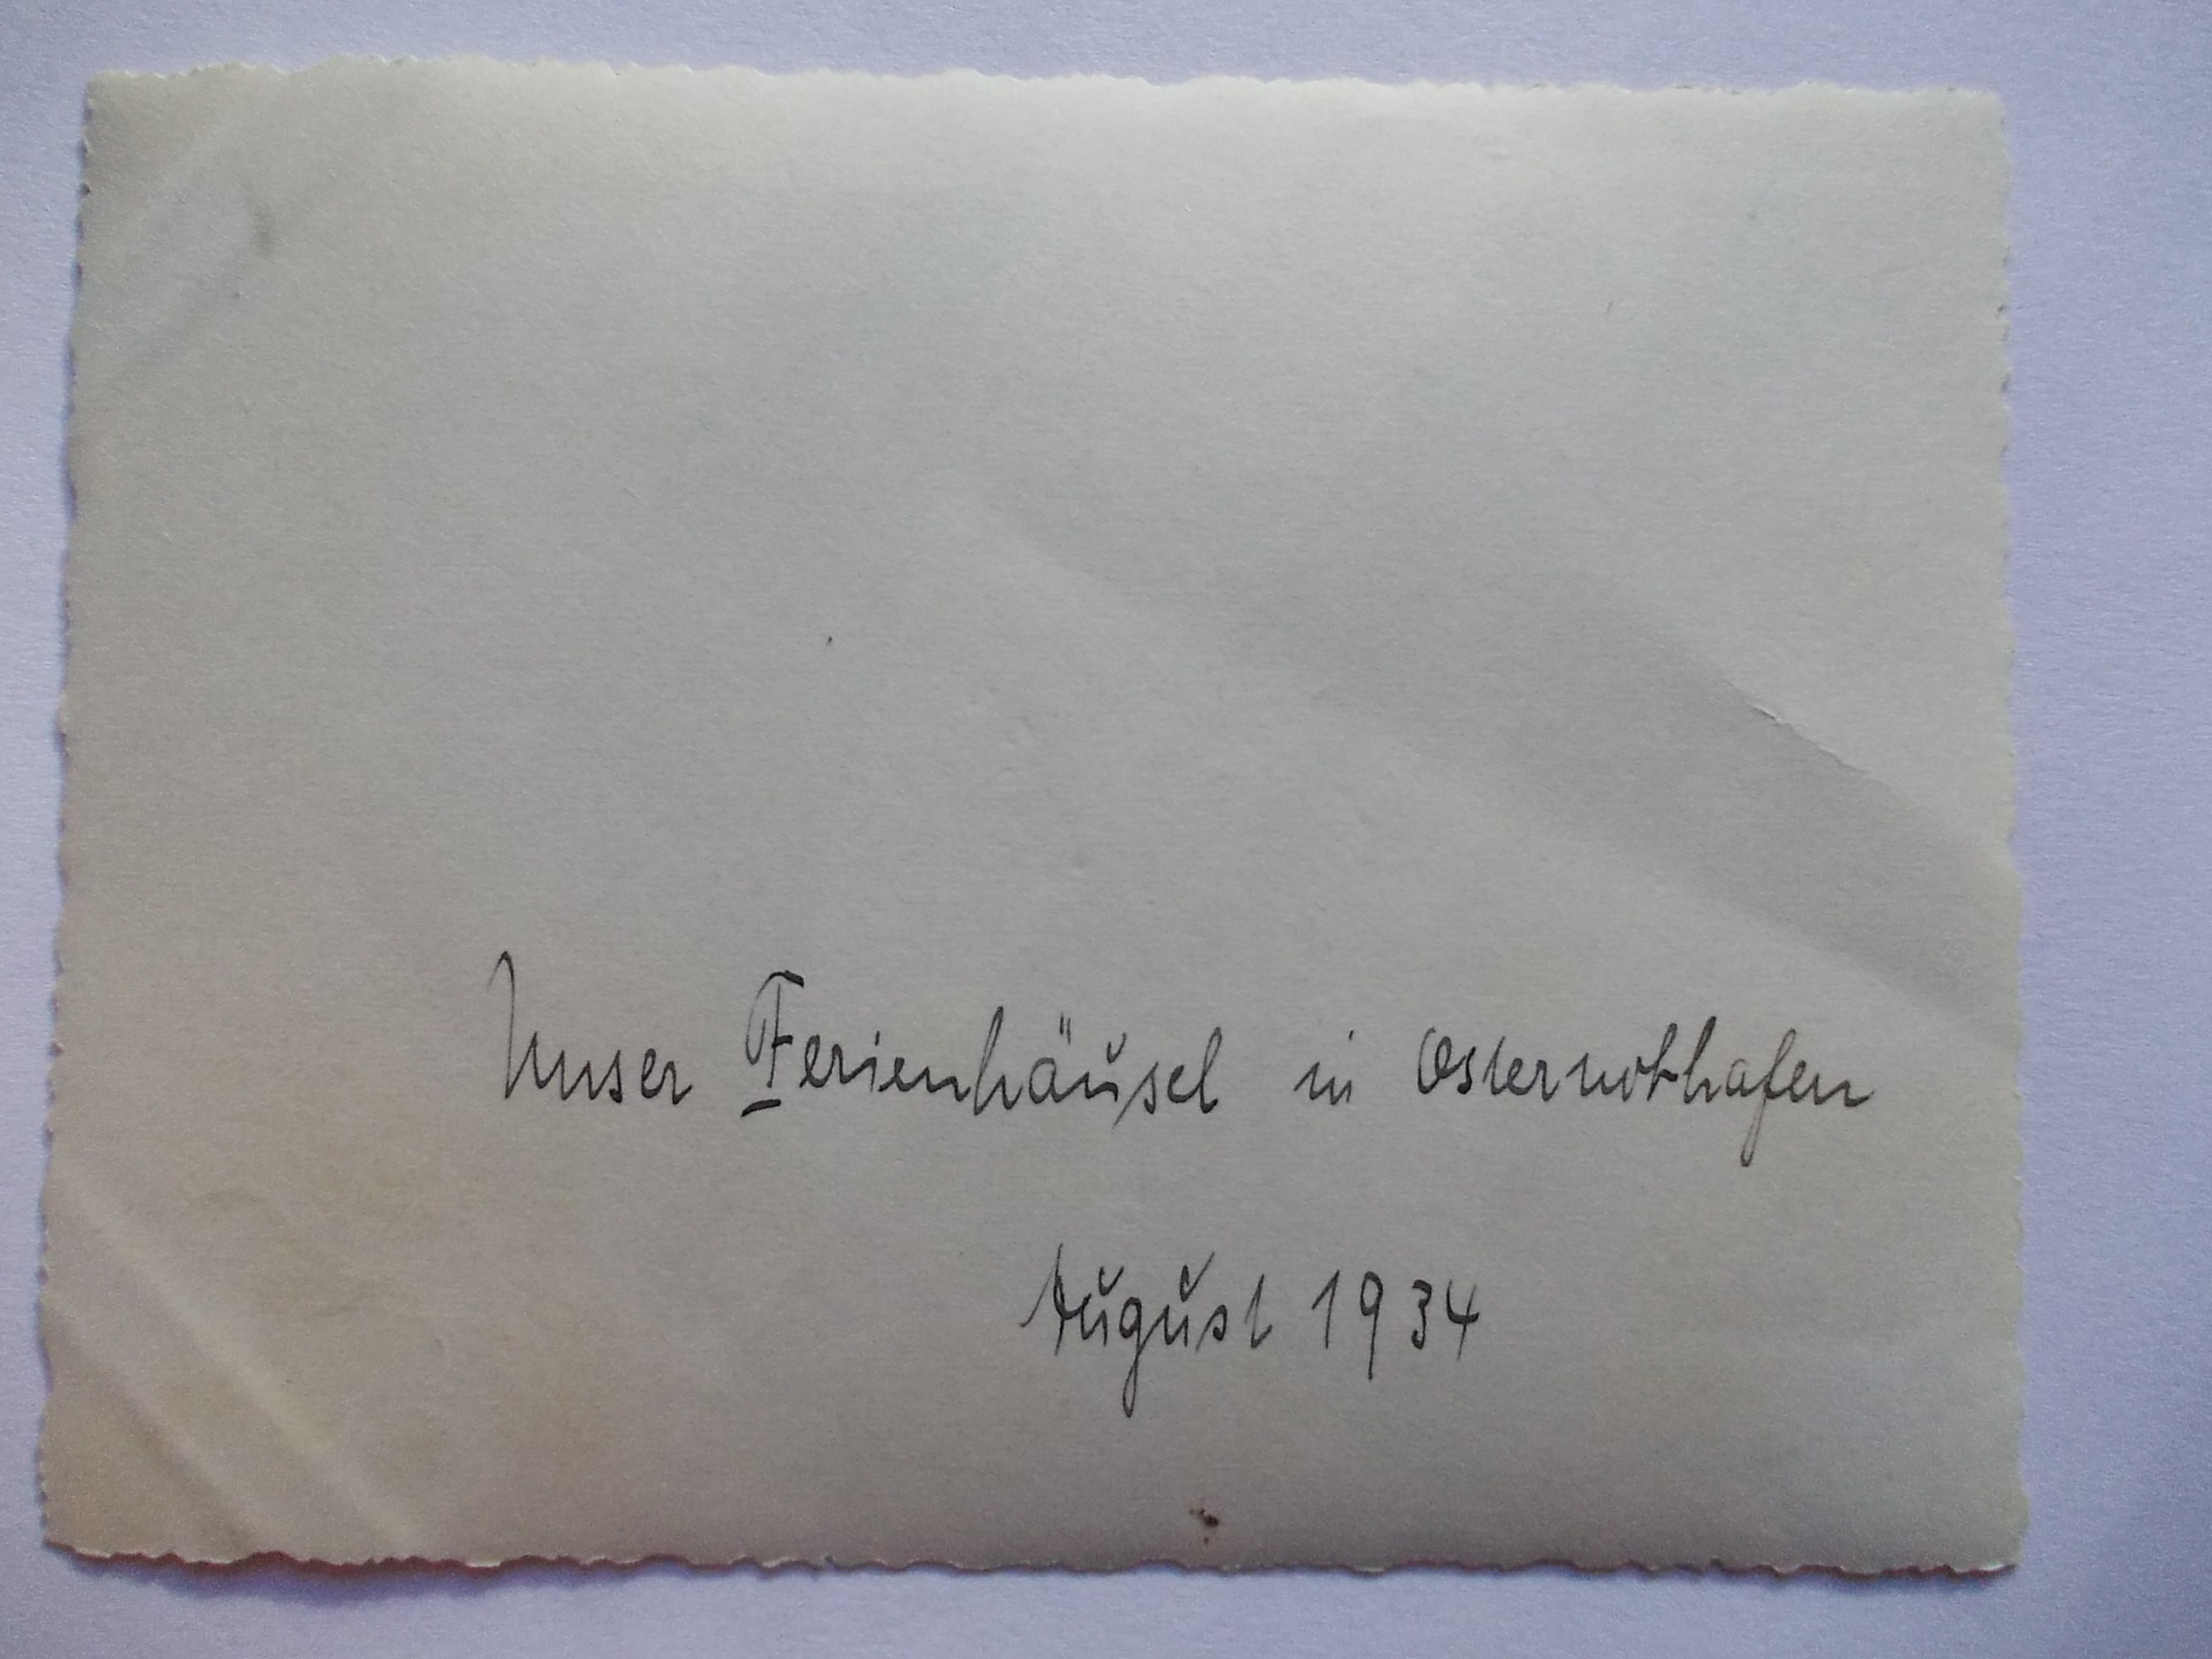 Unser Ferienhäusel in Osternothafen
August 1934